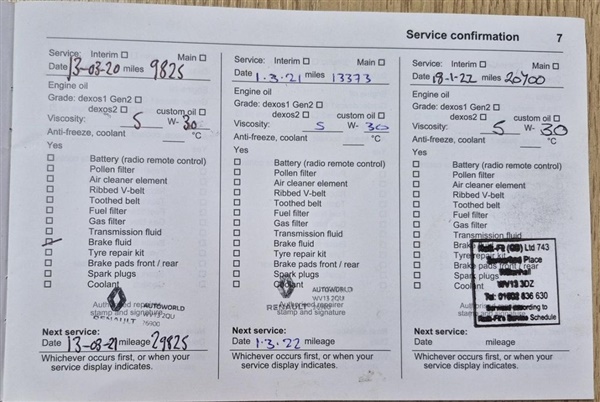 Service confirmation 7
Service: Interim Main
Date 13-03-20 miles 9825
Engine oil
Grade: dexos1 Gen2
dexos2 custom oil
Viscosity: 5 W- 30
Anti-freeze, coolant °C
Yes
Battery (radio remote control)
Pollen filter
Air cleaner element
Ribbed V-belt
Toothed belt
Fuel filter
Gas filter
Transmission fluid
Brake fluid
Tyre repair kit
Brake pads front / rear
Spark plugs
Coolant
AUTOWORLD
WV13 2QU
Authorised repairer
stamp and signature
RENAULT
Next service:
Date 13-03-21 mileage 29825
Whichever occurs first, or when your
service display indicates.
Service: Interim Main
Date 1.3.21 miles 13373
Engine oil
Grade: dexos1 Gen2
dexos2 custom oil
Viscosity: 5 W- 30
Anti-freeze, coolant °C
Yes
Battery (radio remote control)
Pollen filter
Air cleaner element
Ribbed V-belt
Toothed belt
Fuel filter
Gas filter
Transmission fluid
Brake fluid
Tyre repair kit
Brake pads front / rear
Spark plugs
Coolant
AUTOWORLD
WV13 2QU
Authorised repairer
stamp and signature
RENAULT
Next service:
Date 1.3.22 mileage
Whichever occurs first, or when your
service display indicates.
Service: Interim Main
Date 18-1-22 miles 20400
Engine oil
Grade: dexos1 Gen2
dexos2 custom oil
Viscosity: 5 W- 30
Anti-freeze, coolant °C
Yes
Battery (radio remote control)
Pollen filter
Air cleaner element
Ribbed V-belt
Toothed belt
Fuel filter
Gas filter
Transmission fluid
Brake fluid
Tyre repair kit
Brake pads front / rear
Spark plugs
Coolant
(GB) Ltd 743
Place
WV13 3DZ
Tel: 01902 636 630
according to
Service Schedule
Authorised repairer
stamp and signature
Next service:
Date mileage
Whichever occurs first, or when your
service display indicates.